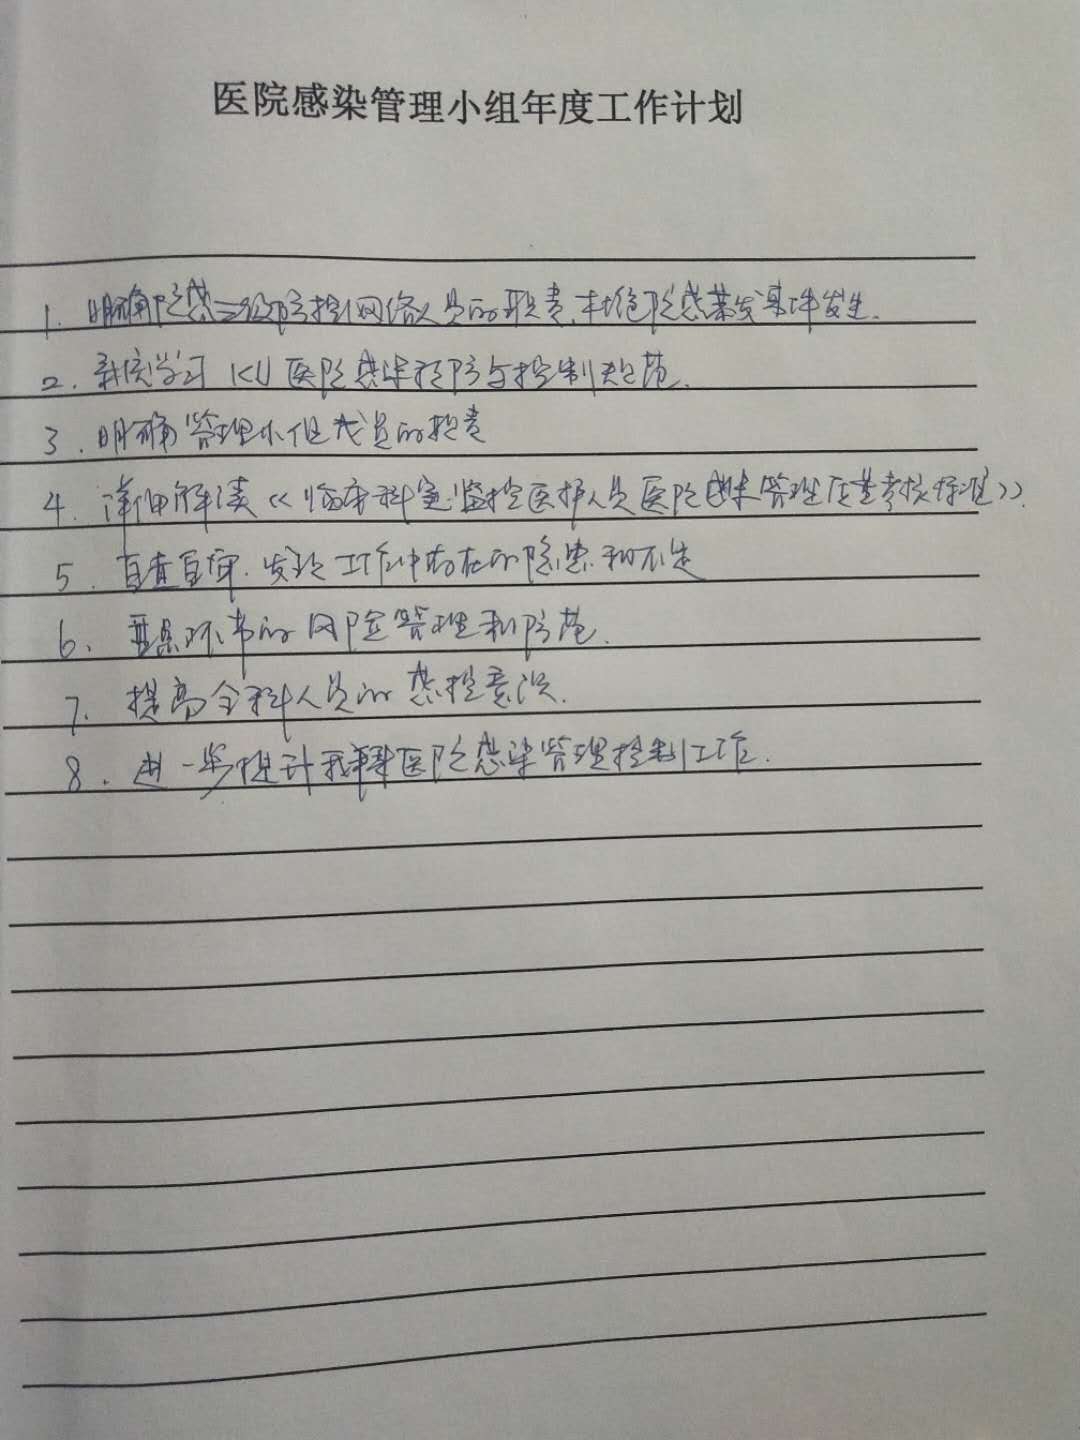 医院感染管理小组年度工作计划
1. 明确院感三级防控网络人员的职责,杜绝院感暴发事件发生.
2. 学习 ICU 医院感染预防与控制规范.
3. 明确管理小组成员的职责
4. 详细解读《临床科室监控医护人员医院感染管理质量考核标准》.
5. 自查自审.发现工作中存在的隐患和不足
6、 环节的风险管理和防范.
7. 提高全科人员的感控意识.
8. 进一步提升我科医院感染管理控制工作.